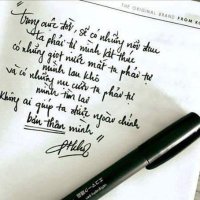 THE ORIGINAL BRAND FROM
"Trong cuộc đời, sẽ có những nỗi đau
ta phải tự mình kết thúc
có những giọt nước mắt ta phải tự
mình lau khô
và có những nụ cười ta phải tự
mình tìm lại
Không ai giúp ta được ngoài chính
bản thân mình"